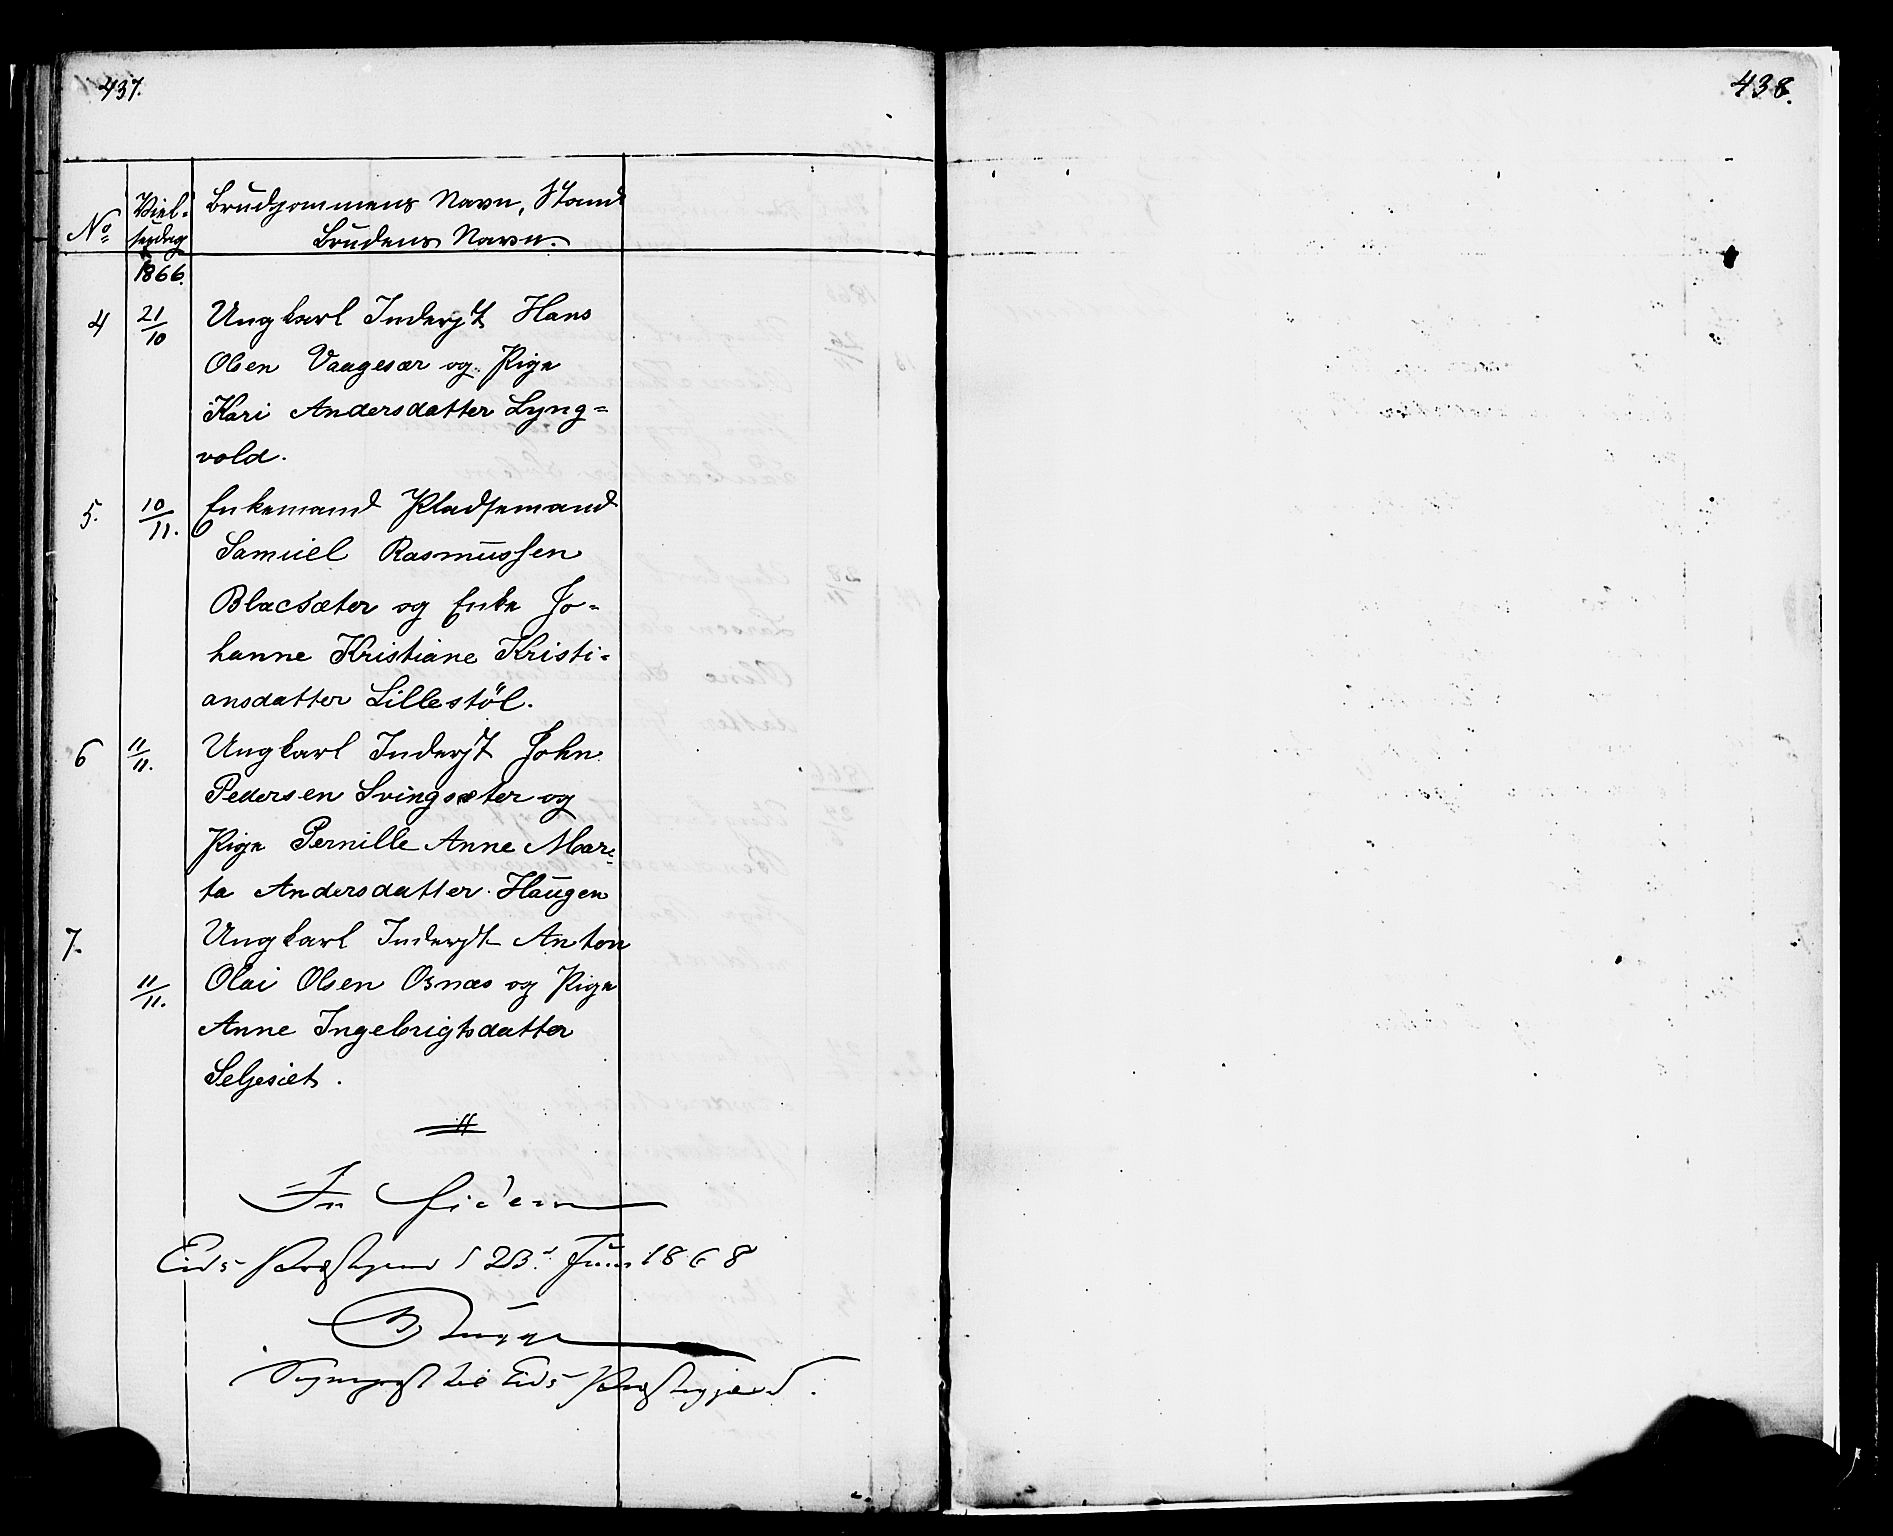 437.
438.
No
Viel-
sesdag
Brudgommens Navn, Stand
Brudens Navn.
1866.
4 21/10 Ungkarl Inderst Hans
Olsen Vaagesær og Pige
Kari Andersdatter Lyng=
vold.
5. 10/11. Enkemand Pladsemand
Samuel Rasmussen
Blacsæter og Enke Jo-
hanne Kristiane Kristi-
ansdatter Lillestöl.
6 11/11. Ungkarl Inderst John
Pedersen Svingsæter og
Pige Pernille Anne Mar-
ta Andersdatter Haugen
7. Ungkarl Inderst Anton
11/11. Olai Olsen Osnæs og Pige
Anne Ingebrigtsdatter
Seljesæt.
In fidem
Eids Præstegjeld d 23d Juni 1868
Sognepræst til Eids Præstegjæld.